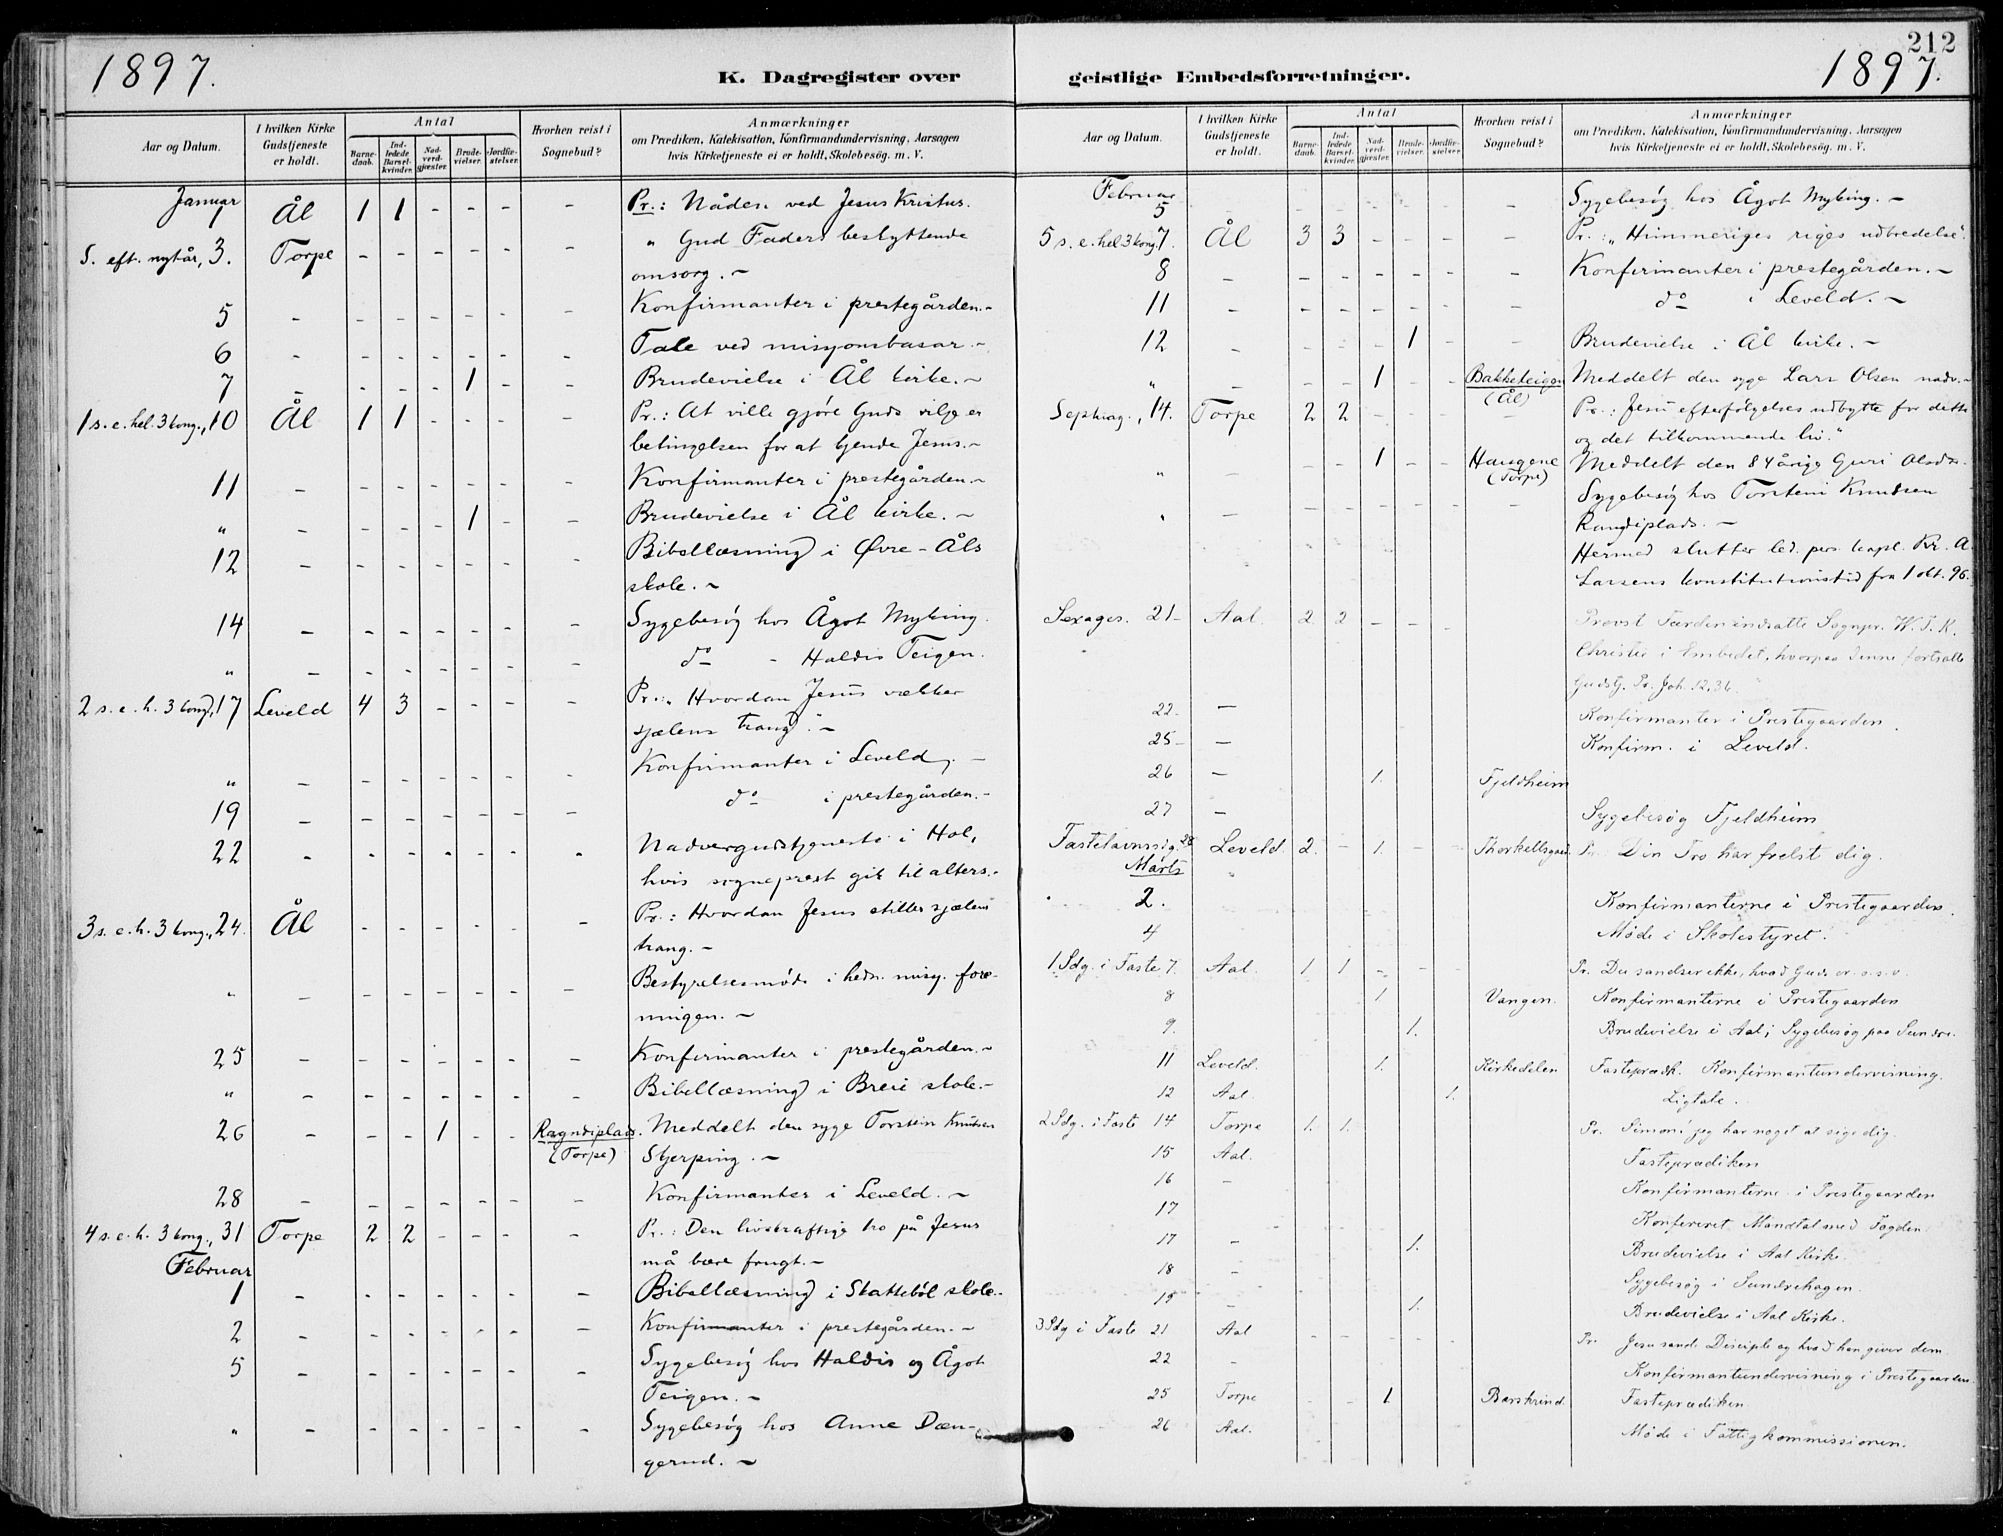 1897.
K. Dagregister over
Aar og Datum.
I hvilken Kirke Gudstjeneste er holdt.
Antal
Barne-daab.
Ind-ledede Barsel-kvinder.
Nad-verd-gjæster.
Brude-vielser.
Jordfæ-stelser.
Hvorhen reist i Sognebud?
Anmærkninger
om Prædiken, Katekisation, Konfirmandundervisning, Aarsagen
hvis Kirketjeneste ei er holdt, Skolebesøg. m. V.
Januar
1 Ål 1 1 - - - - Pr.: Nåden ved Jesus Kristus.
S. eft. nytår, 3. Torpe - - - - - - " Gud Faders beskyttende
omsorg. -
5 - - - - - - - Konfirmanter i prestegården. -
6 - - - - - - - Tale ved misjonsbasar. -
7 - - - - 1 - - Brudevielse i Ål kirke. -
1 s. e. hel. 3 kong., 10 Ål 1 1 - - - - Pr.: At ville gjöre Guds vilje er
betingelsen for at kjende Jesus. -
11 - - - - - - - Konfirmanter i prestegården. -
" - - - - 1 - - Brudevielse i Ål kirke. -
12 - - - - - - - Bibellæsning i Øvre-Åls
skole. -
14 - - - - - - - Sygebesög hos Ågot Myking.
" - - - - - - - do - Haldis Teigen.
2 s. e. h. 3 kong., 17 Leveld 4 3 - - - - Pr.: "Hvordan Jesus vækker
sjælens trang". -
" - - - - - - - Konfirmanter i Leveld. -
19 - - - - - - - do i prestegården. -
22 - - - - - - - Nadvergudstjeneste i Hol,
hvis sogneprest gik til alters. -
3 s. e. h. 3 kong., 24. Ål - - - - - - Pr.: Hvordan Jesus stiller sjælens
trang. -
" - - - - - - - Bestyrelsesmöde i hedn. misj. fore-
ningen. -
25 - - - - - - - Konfirmanter i prestegården. -
" - - - - - - - Bibellæsning i Breie skole. -
26 - - - 1 - - Ragndiplads. Meddelt den syge Torstein Knutsen
(Torpe) Skjerping. -
28 - - - - - - - Konfirmanter i Leveld. -
4 s. e. h. 3 kong., 31 Torpe 2 2 - - - - Pr.: Den livskraftige tro på Jesus
må bære frugt. -
Februar
1 - - - - - - - Bibellæsning i Skatteböl skole. -
2 - - - - - - - Konfirmanter i prestegården. -
5 - - - - - - - Sygebesög hos Haldis og Ågot
Teigen. -
" - - - - - - - Sygebesög hos Anne Dæn-
gerud. -
212
1897.
geistlige Embedsforretninger.
Aar og Datum.
I hvilken Kirke Gudstjeneste er holdt.
Antal
Barne-daab.
Ind-ledede Barsel-kvinder.
Nad-verd-gjæster.
Brude-vielser.
Jordfæ-stelser.
Hvorhen reist i Sognebud?
Anmærkninger
om Prædiken, Katekisation, Konfirmandundervisning, Aarsagen
hvis Kirketjeneste ei er holdt, Skolebesøg. m. V.
Februar
5 - - - - - - - Sygebesög hos Ågot Myking. -
5 s. e. hel. 3 kong. 7. Ål 3 3 - - - - Pr.: "Himmeriges riges udbredelse".
8 - - - - - - - Konfirmanter i prestegården. -
11 - - - - - - - do i Leveld. -
12 - - - - 1 - - Brudevielse i Ål kirke. -
" - - - 1 - - Bakketeigen Meddelt den syge Lars Olsen nadv. -
(Ål)
Septuag., 14. Torpe 2 2 - - - - Pr.: Jesu efterfölgelses udbytte for dette
og det tilkommende liv."
" - - - 1 - - Haugene Meddelt den 84årige Guri Olsdtr.
(Torpe)
" - - - - - - - Sygebesög hos Torstein Knudsen
Rangdiplads. -
Hermed slutter led. pers. kapl. Kr. A.
Larsens konstitutionstid fra 1 okt. 96.
Sexages. 21 - Aal. 2 2 - - - Provst Færden indsatte Sognpr. W. F. K.
Christie i Embedet, hvorpaa denne fortsatte
Gudstj. Pr. Joh. 12,36.
22. - Konfirmanter i Prestegaarden.
25 - - Konfirm. i Leveld.
26 - 1. Fjeldheim
27 - Sygebesøg Fjeldheim
Fastelavnssdg. 28 Leveld. 2. - 1. Thorkellsgaard. Pr. Din Tro har frelst dig.
Marts
2. Konfirmanterne i Prestegaarden.
4 Møde i Skolestyret.
1 Sdg. i Faste 7. Aal. 1 1 - - - Pr. Du sandser ikke, hvad Guds er o. s. v.
8 1 Vangen. Konfirmanterne i Prestegaarden
9. 1. Brudevielse i Aal; Sygebesøg paa Sundre.
11 Leveld. 1. Kirkedelen Fasteprædk. Konfirmantundervisning.
12 Aal. 1. Ligtale.
2 Sdg. i Faste 14 Torpe 1. 1. Pr. Simon! jeg har noget at sige dig.
15 Aal. Fasteprædiken
16 - Konfirmanterne i Prestegaarden
17 Konfereret Mandtal med Fogden.
17 - 1. Brudevielse i Aal Kirke.
18 - Sygebesøg i Sundrehagen.
19 - 1. Brudevielse i Aal Kirke.
3 Sdg i Faste 21 Aal - - - - - Pr. Jesu sande Disciple og hvad han giver dem.
22 - Konfirmantundervisning i Prestegaarden.
25 Torpe - - 1 Barskrind. Fasteprædiken.
26 Aal. Møde i Fattigkommissionen.